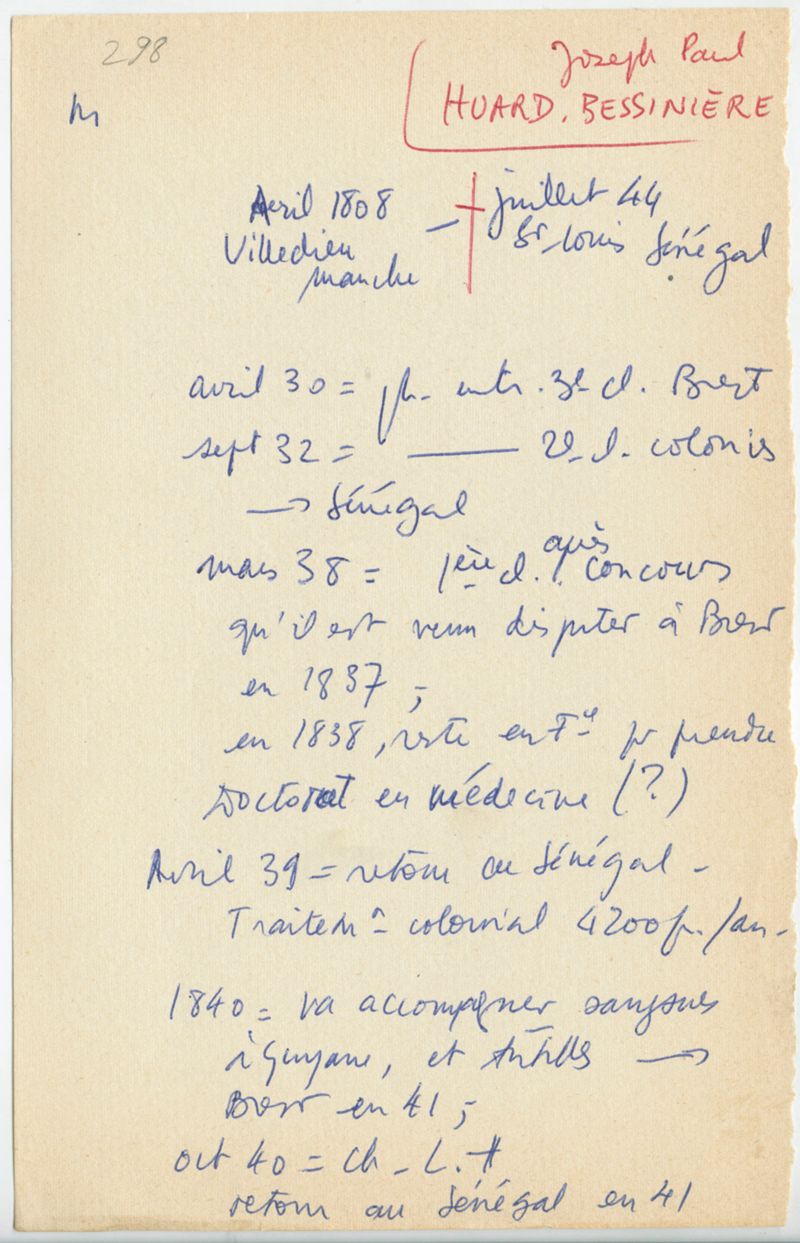 298
Joseph Paul
M
HUARD. BESSINIÈRE
Avril 1808 – † juillet 44
Villedieu St Louis Sénégal
manche
avril 30 = ph. entr. 3e cl. Brest
sept 32 = —— 2e cl. colonies
→ Sénégal
mars 38 = 1ère cl. après concours
qu'il est venu disputer à Brest
en 1837 ;
en 1838, reste en Fce pr prendre
Doctorat en médecine (?)
Avril 39 = retour au Sénégal –
Traitemt colonial 4200 fr. /an –
1840 = va accompagner sangsues
à Guyane, et Antilles →
Brest en 41 ;
oct 40 = Ch – L. H
retour au Sénégal en 41